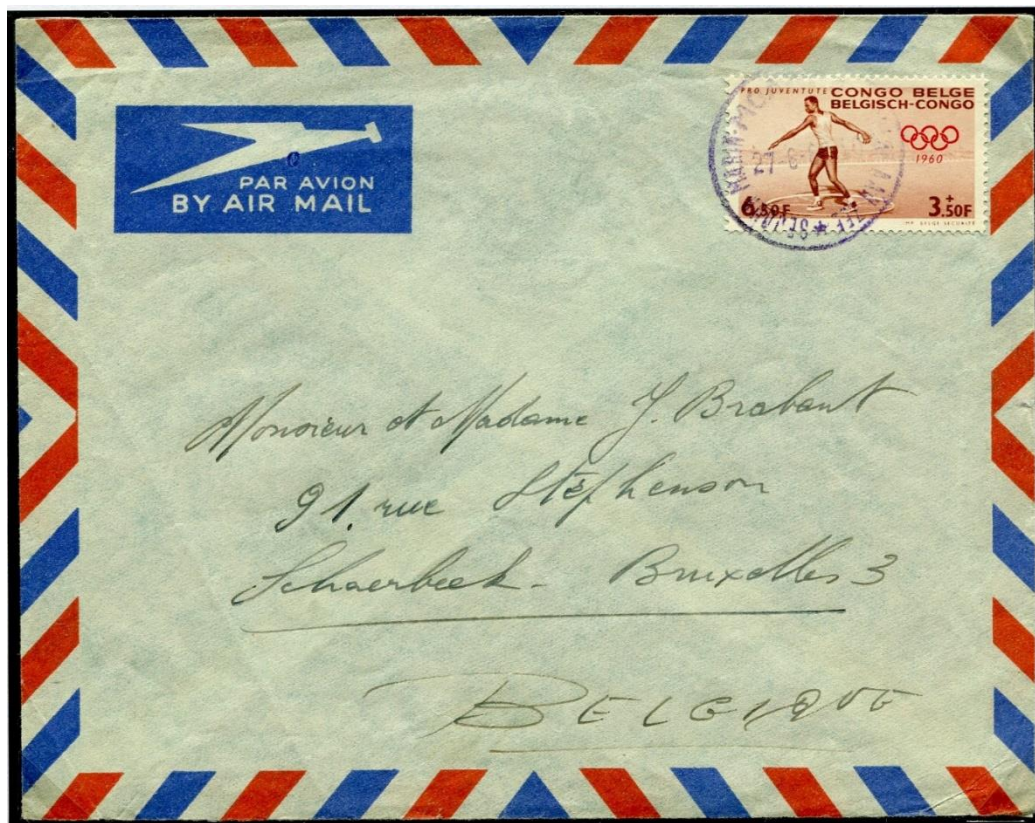 PAR AVION
BY AIR MAIL
PRO JUVENTUTE CONGO BELGE
BELGISCH-CONGO
1960
6.50F + 3.50F
IMP. BELGE SECURITE
27-6-
Monsieur et Madame J. Brabant
91. rue Stéphenson
Schaerbeek - Bruxelles 3
BELGIQUE